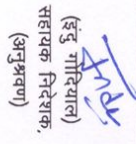 (इंदु गोदियाल)
सहायक निदेशक.
(अनुश्रवण)